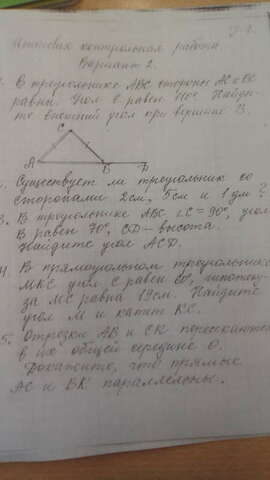 Итоговая контрольная работа.
Вариант 2.
В треугольнике АВС стороны АС и ВС
равны. Угол С равен Найди-
те внешний угол при вершине В.
С
А В D
Существует ли треугольник со
сторонами 2см, 5см и 1 дм?
3. В треугольнике АВС ∠С = 90°, угол
В равен 70°, CD – высота.
Найдите угол ACD.
4. В прямоугольном треугольнике
МКС угол С равен 60°, гипотену-
за МС равна 19см. Найдите
угол М и катет КС.
5. Отрезки АВ и СК пересекаются
в их общей середине О.
Докажите, что прямые
АС и ВК параллельны.